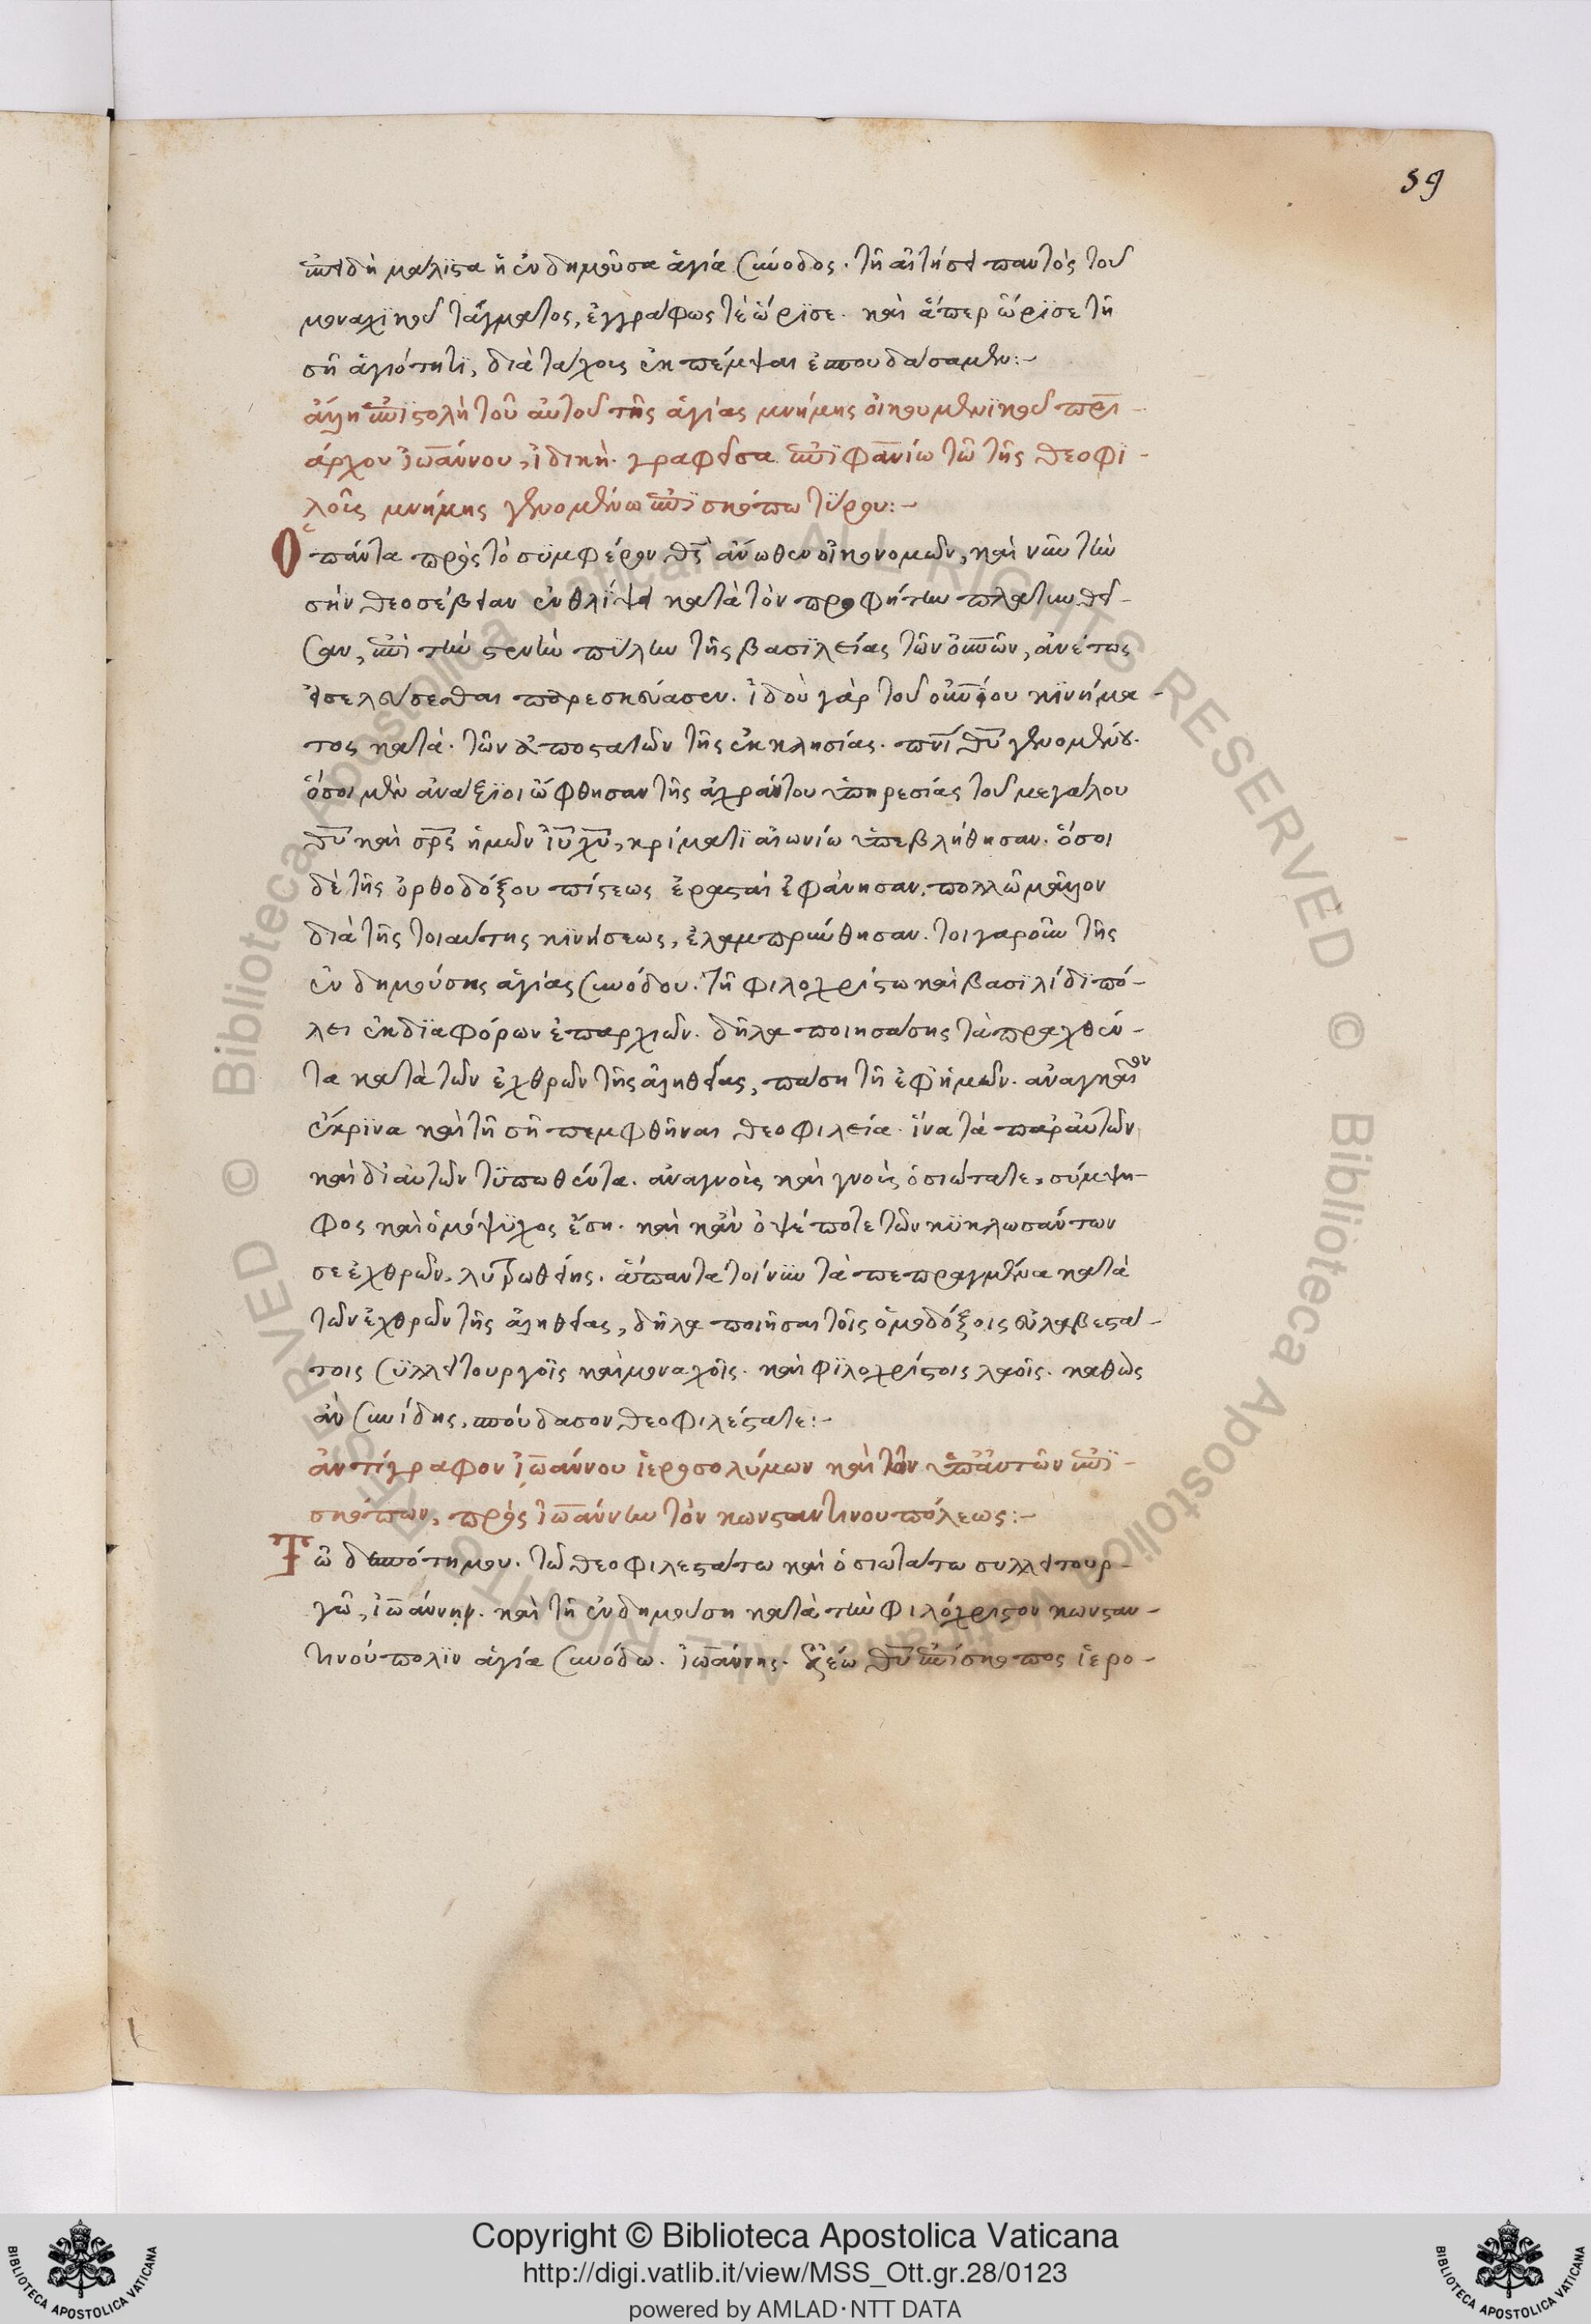 59
ἐπειδὴ μάλϊστα ἡ ἐνδημοῦσα ἁγία σύνοδος· τῆ αἰτήσει παντὸς τοῦ
μοναχϊκοῦ τάγματος, ἐγγράφως τὲ ὥρϊσε· καὶ ἅπερ ὥρϊσε τῆ
σῆ ἁγιότητϊ, διὰ τάχους ἐκπέμψαι ἐσπουδάσαμεν:–
ἄλλη ἐπϊστολὴ τοῦ αὐτοῦ τῆς ἁγίας μνήμης οἰκουμενϊκοῦ πρι–
άρχου ἰωάννου, ἰδικὴ· γραφεῖσα ἐπϊφανίω τῶ τῆς θεοφϊ–
λοῦς μνήμης γενομένω ἐπϊσκόπω τύρου:–
Ὁ πάντα πρὸς τὸ σϋμφέρον θς ἄνωθεν οἰκονομῶν, καὶ νῦν τὴν
σὴν θεοσέβειαν ἐν θλίψει κατὰ τὸν προφήτην πλατυνθεῖ–
σαν, ἐπὶ τὴν στενὴν πύλην τῆς βασϊλείας τῶν οὐνῶν, ἀνέτως
εἰσελεύσεσθαι παρεσκεύασεν· ἰδοὺ γὰρ τοῦ οὐνίου κϊνήμα–
τος κατὰ· τῶν ἀποστατῶν τῆς ἐκκλησίας· πνι θυ γενομένου·
ὅσοι μὲν ἀνάξϊοι ὤφθησαν τῆς ἀχράντου ὑπηρεσίας τοῦ μεγάλου
θυ καὶ σρς ἡμῶν ιυ χυ, κρίματϊ αἰωνίω ὑπεβλήθησαν· ὅσοι
δὲ τῆς ὀρθοδόξου πίστεως ἐρασταὶ ἐφάνησαν, πολλῶ μᾶλλον
διὰ τῆς τοιαύτης κϊνήσεως, ἐλαμπρύνθησαν· τοιγαροῦν τῆς
ἐνδημούσης ἁγίας συνόδου· τῆ φιλοχρίστω καὶ βασϊλίδϊ πό–
λει ἐκ δϊαφόρων ἐπαρχιῶν· δῆλα ποιησάσης τὰ πραχθέν–
τα κατὰ τῶν ἐχθρῶν τῆς ἀληθείας, πάση τῆ ἐφ ἡμῶν· ἀναγκαῖον
ἔκρϊνα καὶ τῆ σῆ πεμφθῆναι θεοφιλεία· ἵνα τὰ παρ αὐτῶν
καὶ δι αὐτῶν τϋπωθέντα· ἀναγνοὺς καὶ γνοὺς ὁσιώτατε, σύμψη–
φος καὶ ὁμόψϋχος ἔση· καὶ κἂν ὀψέ ποτε τῶν κϋκλωσάντων
σε ἐχθρῶν, λυτρωθείης· ἅπαντα τοίνυν τὰ πεπραγμένα κατὰ
τῶν ἐχθρῶν τῆς ἀληθείας, δῆλα ποιῆσαι τοῖς ὁμοδόξοις εὐλαβεστά–
τοις σϋλλειτουργοῖς καὶ μοναχοῖς· καὶ φϊλοχρίστοις λαοῖς· καθὼς
ἂν συνίδης, σπούδασον θεοφιλέστατε:–
ἀντίγραφον ἰωάννου ἱεροσολύμων καὶ τῶν ὑπ αὐτῶν ἐπϊ–
σκόπων, πρὸς ἰωάννην τὸν κωνσταντινουπόλεως:–
Τῶ δεσπότη μου· τῶ θεοφιλεστάτω καὶ ὁσιωτάτω συλλειτουρ–
γῶ, ἰωάννη· καὶ τῆ ἐνδημούση κατὰ τὴν φιλόχριστον κωνσταν–
τινούπολϊν ἁγία συνόδω· ἰωάννης· ἐλέω θυ ἐπίσκοπος ἱερο–
Copyright © Biblioteca Apostolica Vaticana
http://digi.vatlib.it/view/MSS_Ott.gr.28/0123
powered by AMLAD·NTT DATA